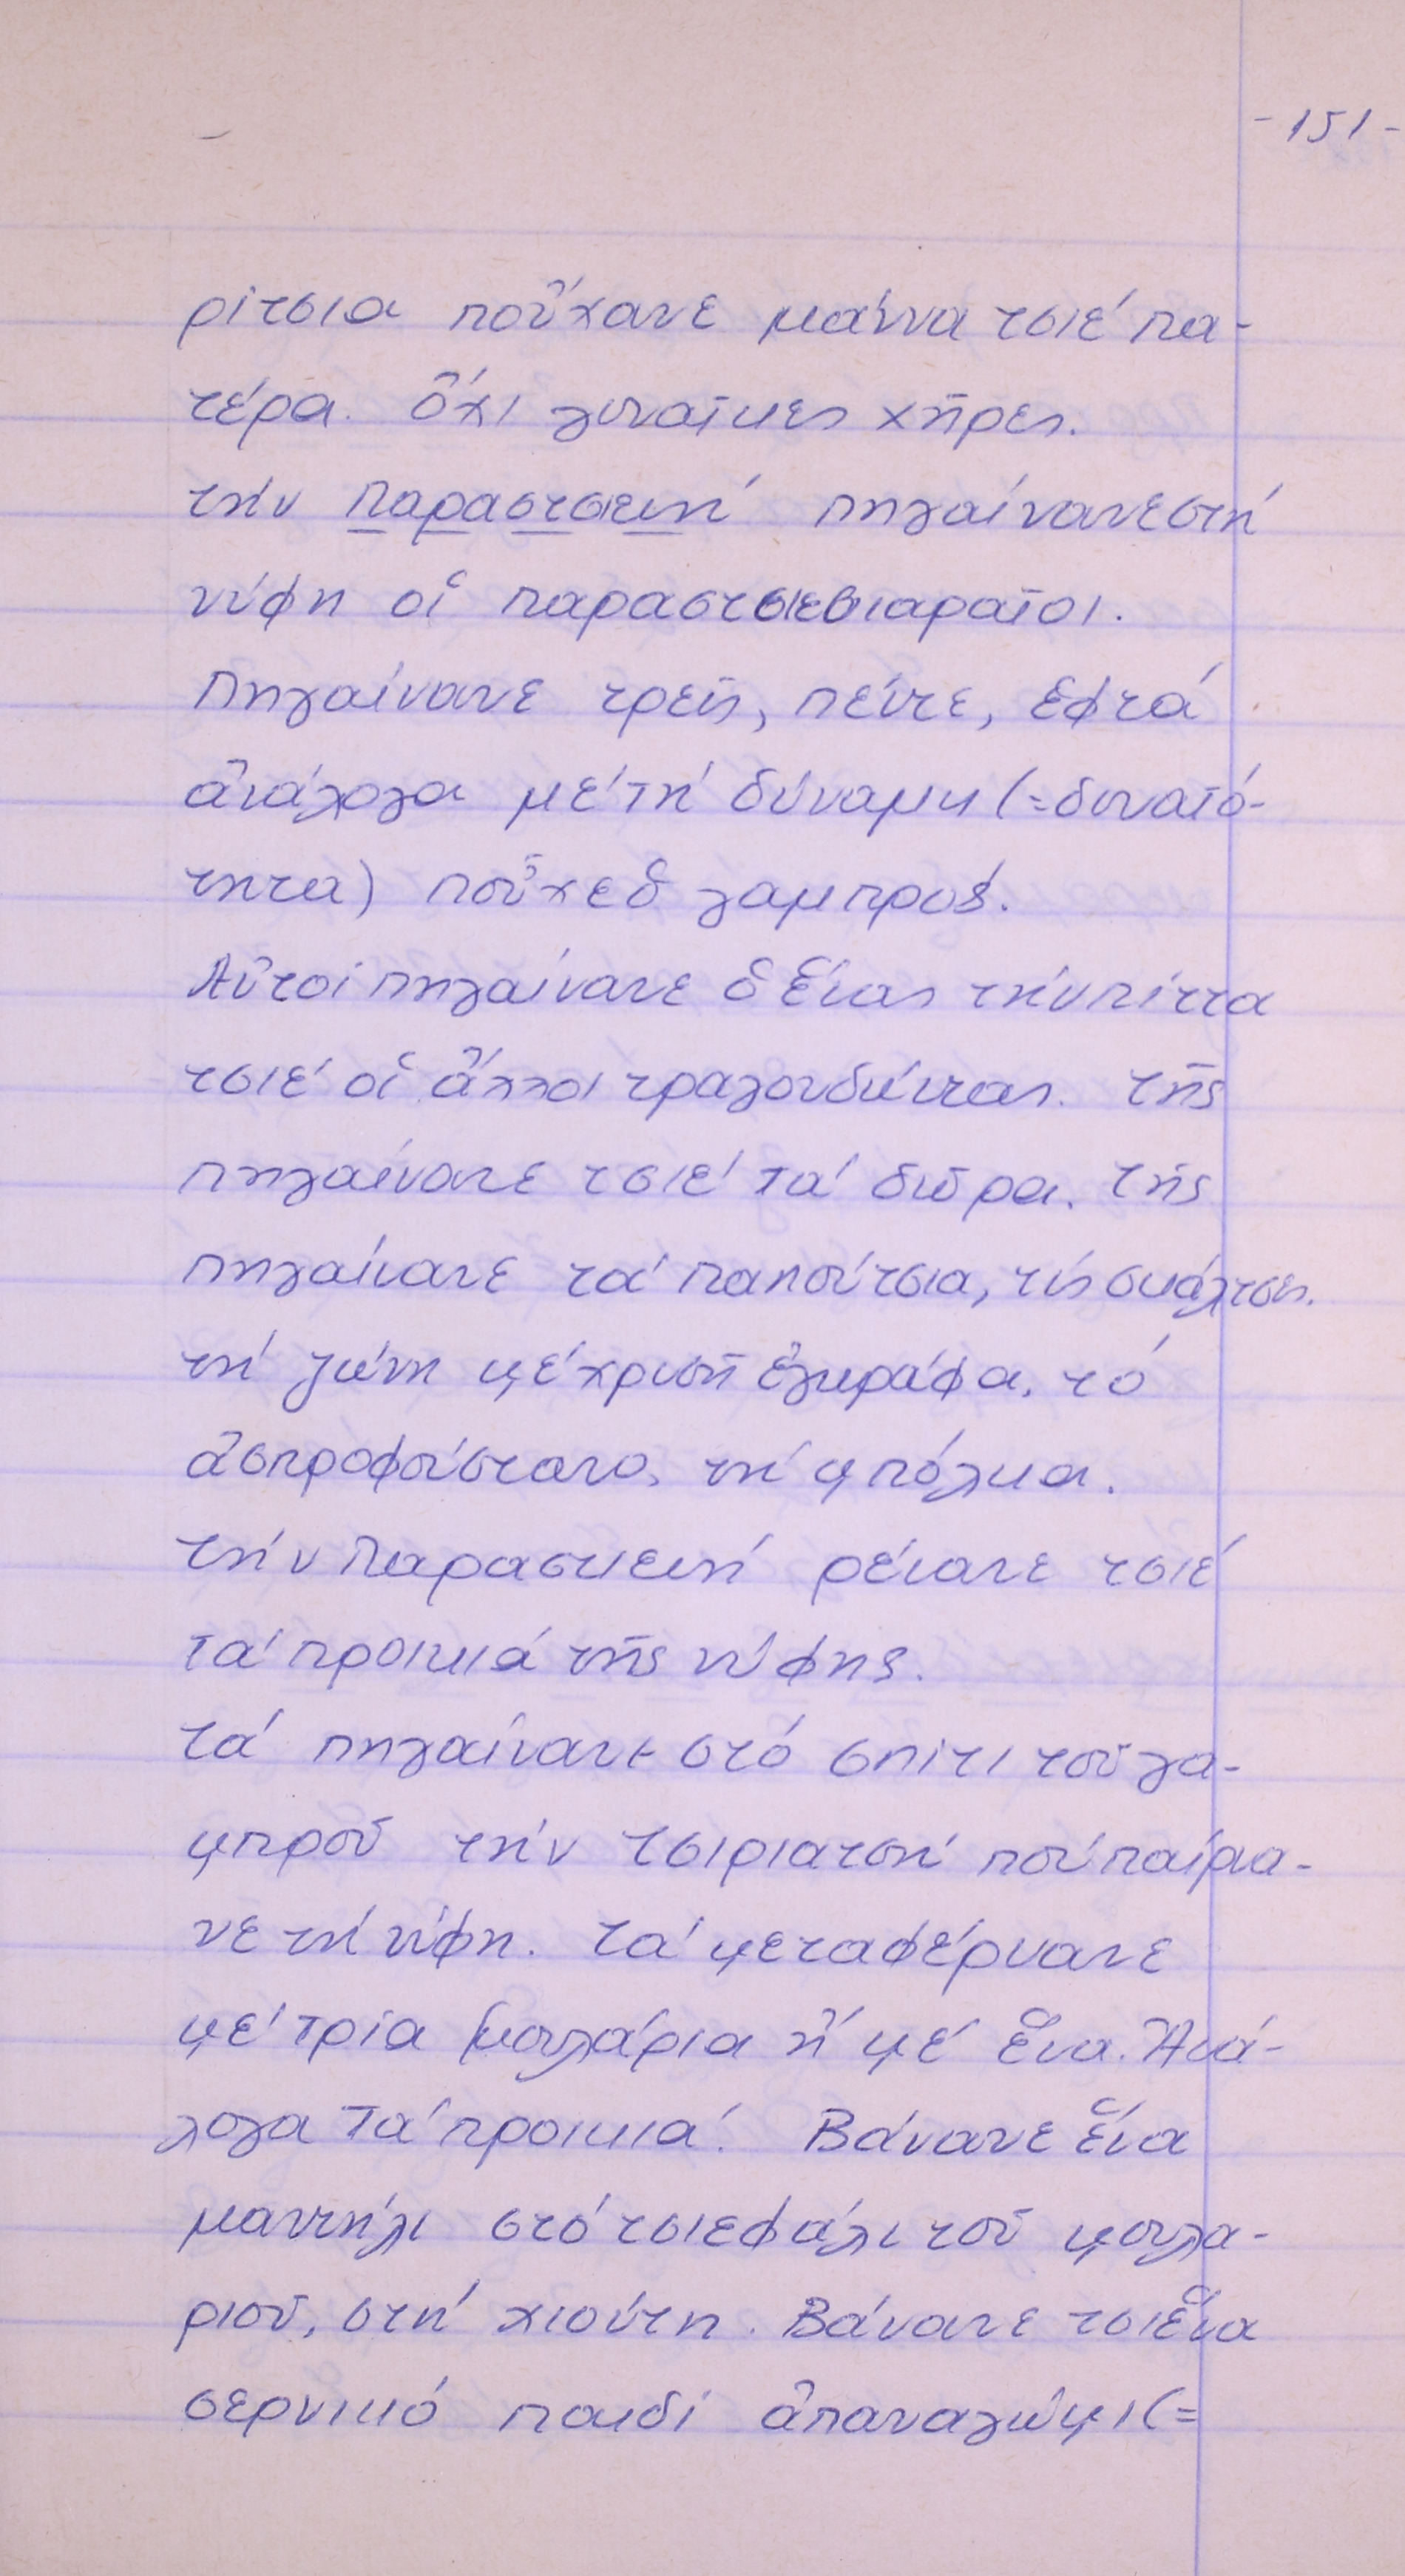 -151-
ρίτσια ποὖχανε μάννα τσιέ πα-
τέρα. ὄχι γυναῖκες χῆρες.
τήν Παραστσιευή πηγαίνανε στή
νύφη οἱ παραστσιεβιαραῖοι.
Πηγαίνανε τρεῖς, πέντε, ἑφτά
ἀνάλογα μέ τή δύναμη (=δυνατό-
τητα) ποὖχε ὁ γαμπρός.
Αὐτοί πηγαίνανε ὁ ἕνας τήν πίττα
τσιέ οἱ ἄλλοι τραγουδώντας. τῆς
πηγαίνανε τσιέ τά δῶρα. τῆς
πηγαίνανε τά παπούτσια, τίς σκάλτσες.
τή ζώνη μέ χρυσῆ ἐγγράφα, τό
ἀσπροφούστανο, τή μπόλκα.
τήν Παρασκευή ρέβανε τσιέ
τά προικιά τῆς νύφης.
τά πηγαίνανε στό σπίτι τοῦ γα-
μπροῦ τήν τσιριατσή πού παίρνα-
νε τή νύφη. τά μεταφέρνανε
μέ τρία μουλάρια ἤ μέ ἕνα. Ἀνά-
λογα τά προικιά. Βάνανε ἕνα
μαντήλι στό τσιεφάλι τοῦ μουλα-
ριοῦ, στή χιούτη. Βάνανε τσι ἕνα
σερνικό παιδί ἀπαναγώμι (=